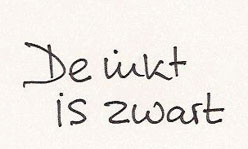 De inkt
is zwart